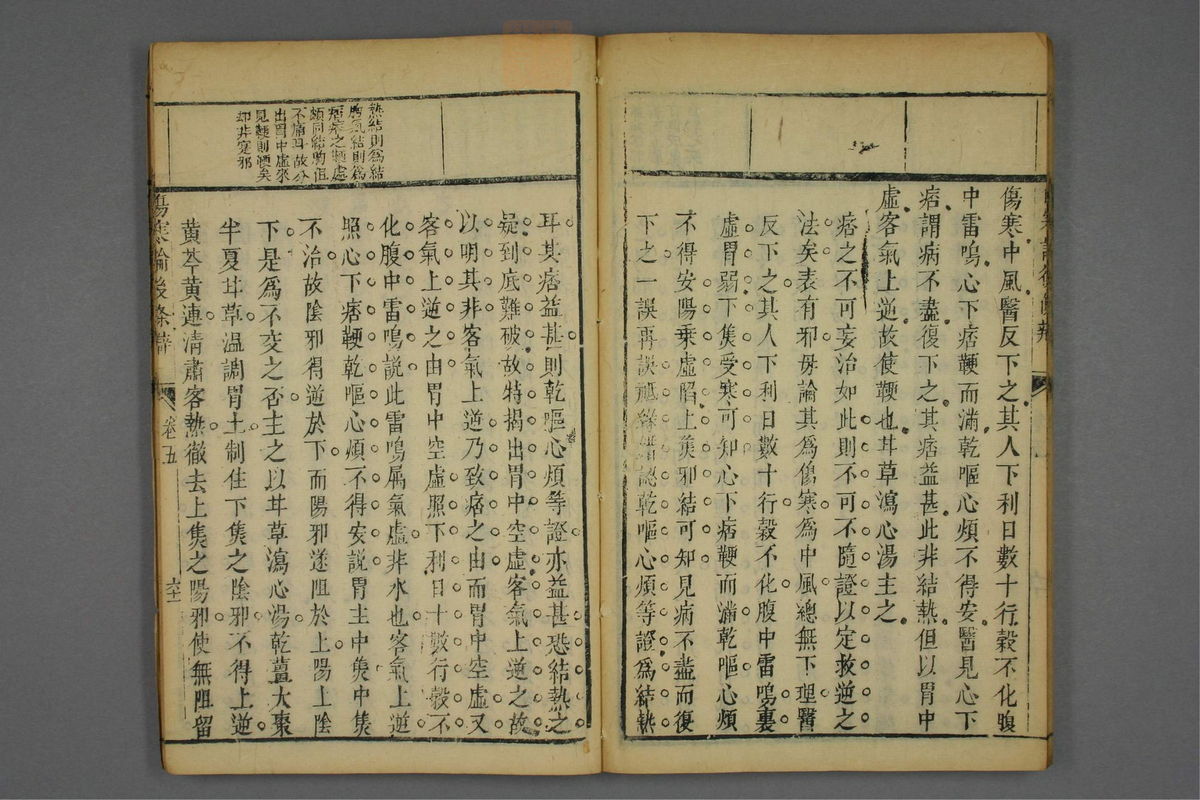 傷寒中風醫反下之其人下利日數十行穀不化腹
中雷鳴心下痞鞕而滿乾嘔心煩不得安醫見心下
痞謂病不盡復下之其痞益甚此非結熱但以胃中
虛客氣上逆故使鞕也甘草瀉心湯主之
痞之不可妄治如此則不可不隨證以定救逆之
法矣表有邪毋論其爲傷寒爲中風總無下理醫
反下之其人下利日數十行穀不化腹中雷鳴裏
虛胃弱下焦受寒可知心下痞鞕而滿乾嘔心煩
不得安陽乘虛陷上焦邪結可知見病不盡而復
下之一誤再誤認乾嘔心煩等證爲結熱
熱結則爲結
胸氣結則爲
痞痞之鞕處
頗同結胸但
不痛耳故分
出胃中虛來
見鞕則鞕矣
却非寔邪
耳其痞益甚則乾嘔心煩等證亦益甚恐結熱之
疑到底難破故特揭出胃中空虛客氣上逆之故
以明其非客氣上逆乃致痞之由而胃中空虛又
客氣上逆之由胃中空虛照下利日十數行穀不
化腹中雷鳴說此雷鳴属氣虛非水也客氣上逆
照心下痞鞕乾嘔心煩不得安說胃主中焦中焦
不治故陰邪得逆於下而陽邪遂阻於上陽上陰
下是爲不交之否主之以甘草瀉心湯乾薑大棗
半夏甘草温調胃土制住下焦之陰邪不得上逆
黄芩黄連清肅客熱徹去上焦之陽邪使無阻留
傷寒論後條辯
卷五
六十一